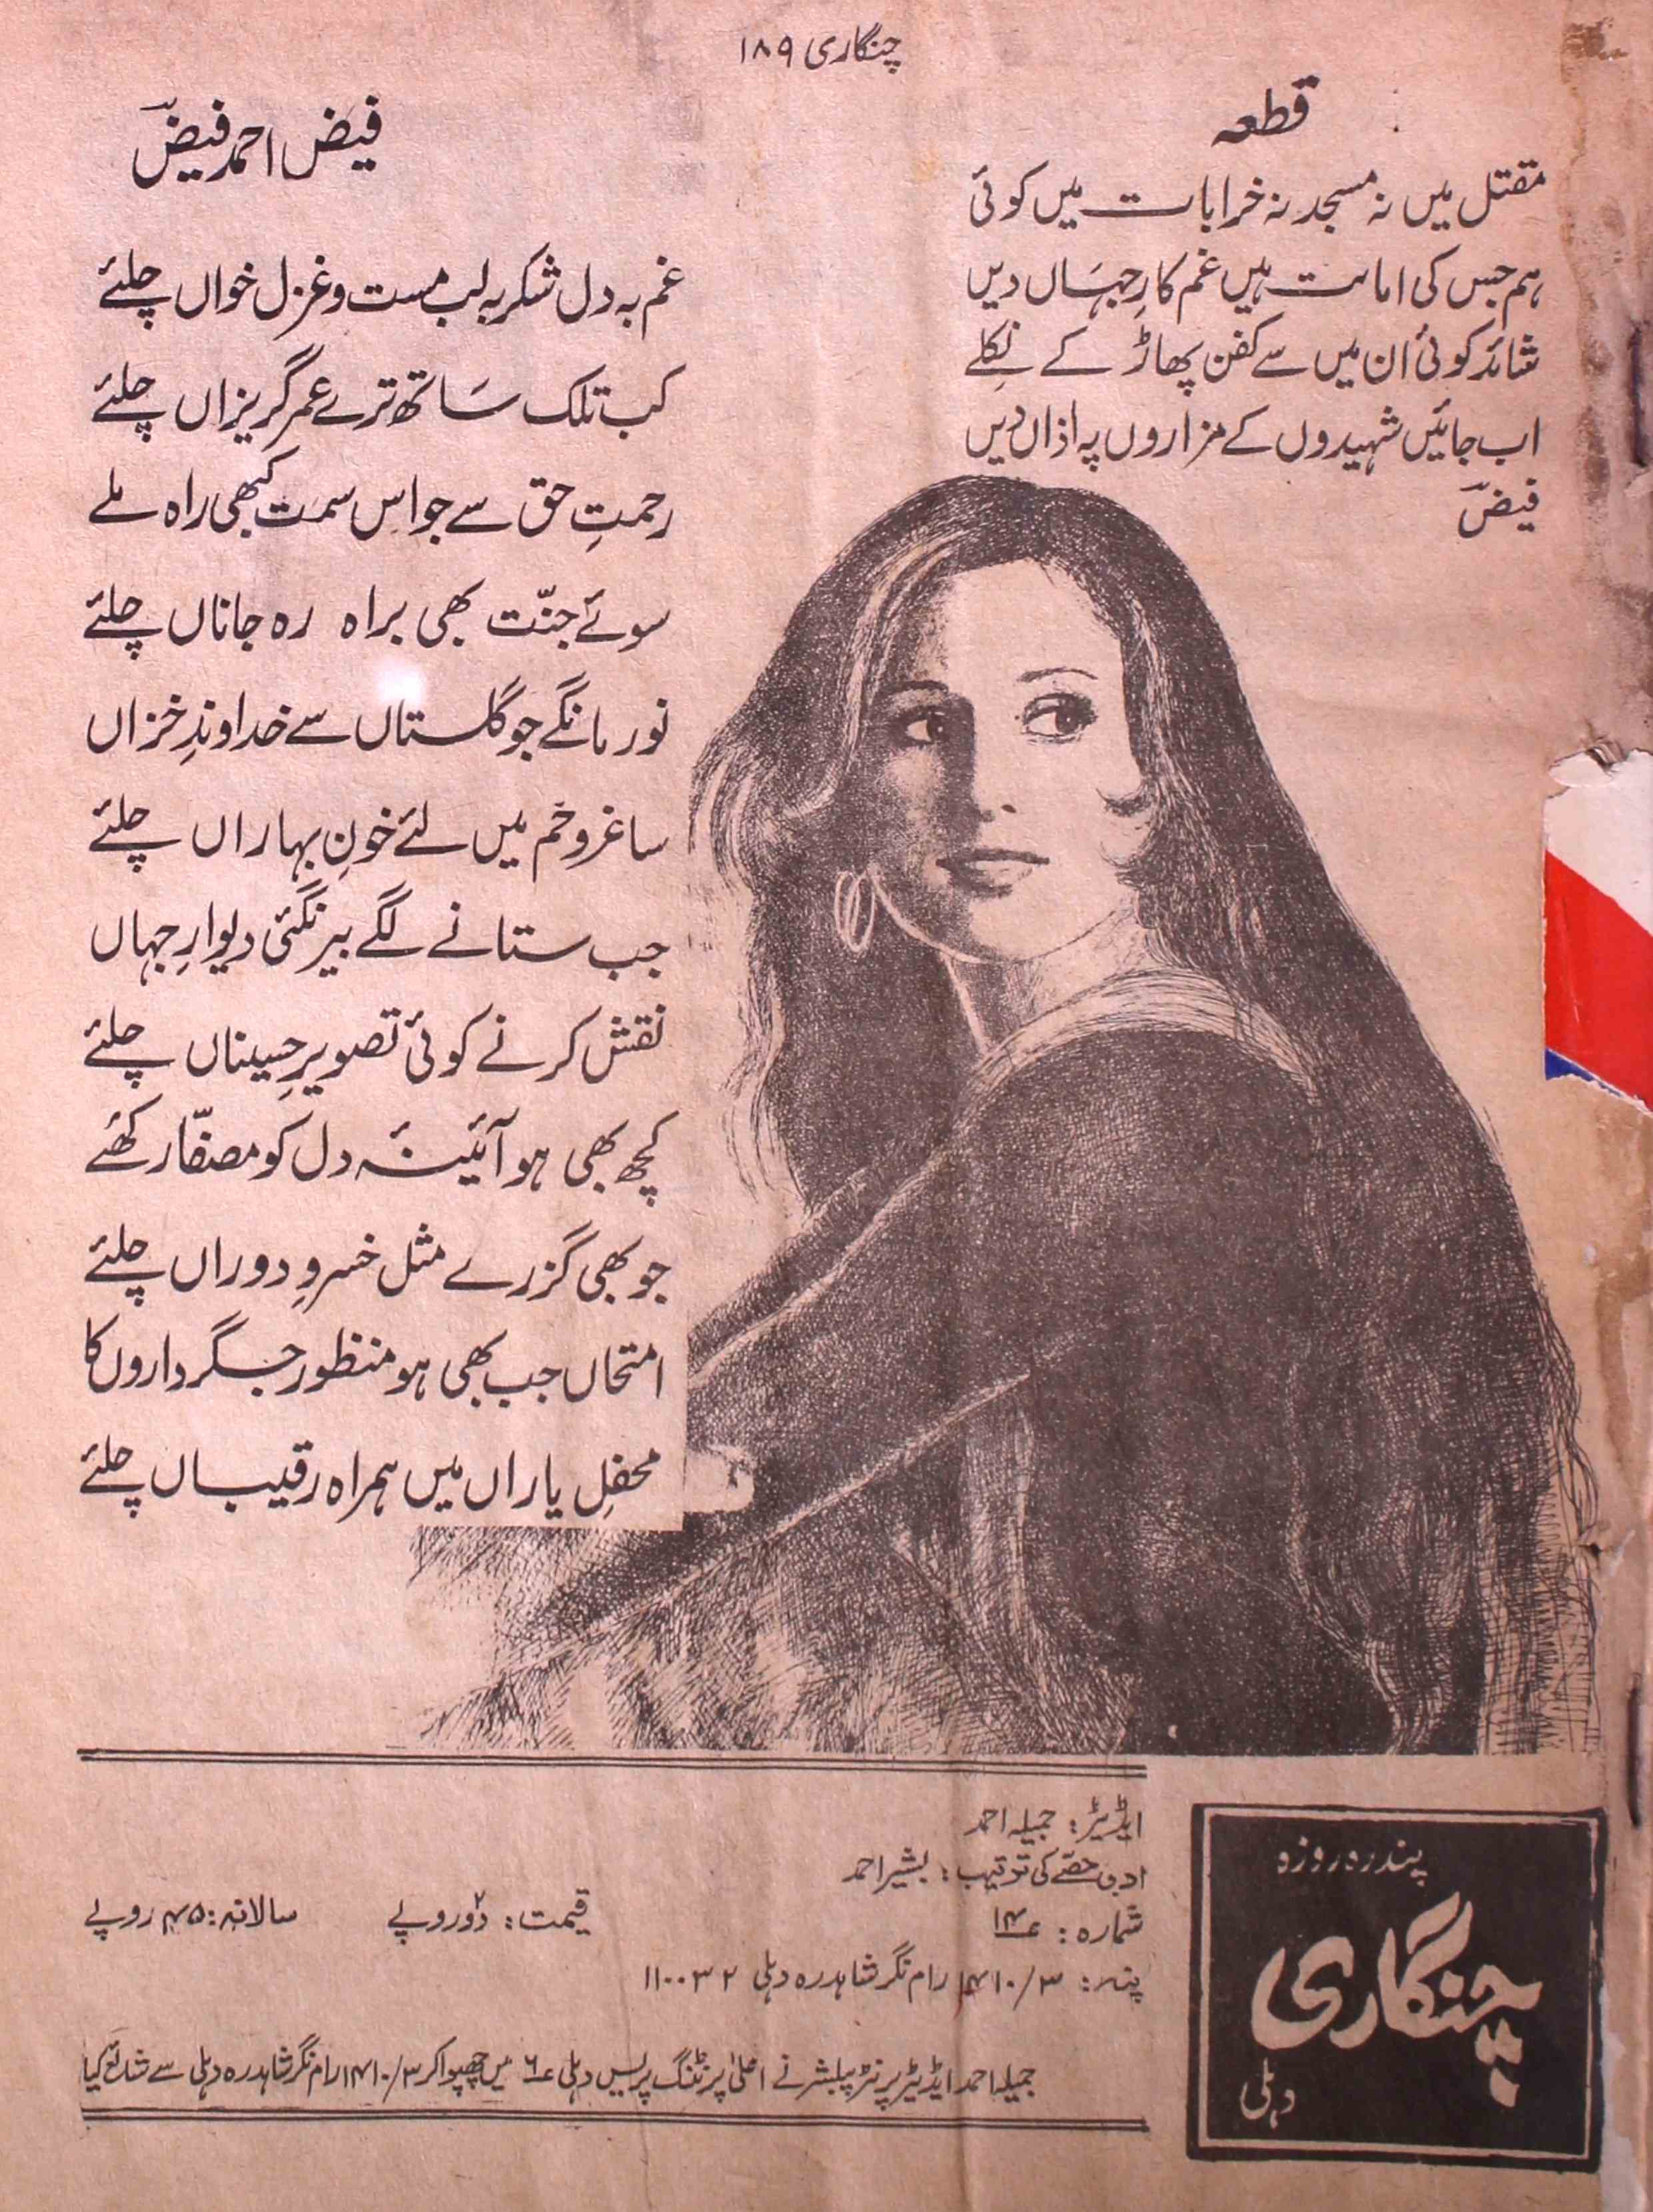 چنگاری ۱۸۹
قطعہ
مقتل میں نہ مسجد نہ خرابات میں کوئی
ہم جس کی امانت ہیں غم کارِ جہاں دیں
شائد کوئی اُن میں سے کفن پھاڑ کے نکلے
اب جائیں شہیدوں کے مزاروں پہ اذاں دیں
فیضؔ
فیض احمد فیضؔ
غم بہ دل شکر بہ لب مست و غزل خواں چلئے
کب تلک ساتھ ترے عمر گریزاں چلئے
رحمتِ حق سے جو اس سمت کبھی راہ ملے
سوئے جنّت بھی براہ رہ جاناں چلئے
نور مانگے جو گلستاں سے خداوندِ خزاں
ساغر و خم میں لئے خونِ بہاراں چلئے
جب ستانے لگے بیرنگئی دیوارِ جہاں
نقش کرنے کوئی تصویرِ حسیناں چلئے
کچھ بھی ہو آئینۂ دل کو مصفّا رکھئے
جو بھی گزرے مثل خسروِ دوراں چلئے
امتحاں جب بھی ہو منظور جگر داروں کا
محفلِ یاراں میں ہمراہ رقیباں چلئے
ایڈیٹر: جمیلہ احمد
ادبی حصّے کی ترتیب: بشیر احمد
شمارہ: ۱۴ قیمت: دو روپے سالانہ: ۴۵ روپے
پتہ: ۳/۱۴۱۰ رام نگر شاہدرہ دہلی ۱۱۰۰۳۲
جمیلہ احمد ایڈیٹر پرنٹر پبلشر نے اعلیٰ پرنٹنگ پریس دہلی ۶ میں چھپوا کر ۳/۱۴۱۰ رام نگر شاہدرہ دہلی سے شائع کیا
پندرہ روزہ
چنگاری
دہلی